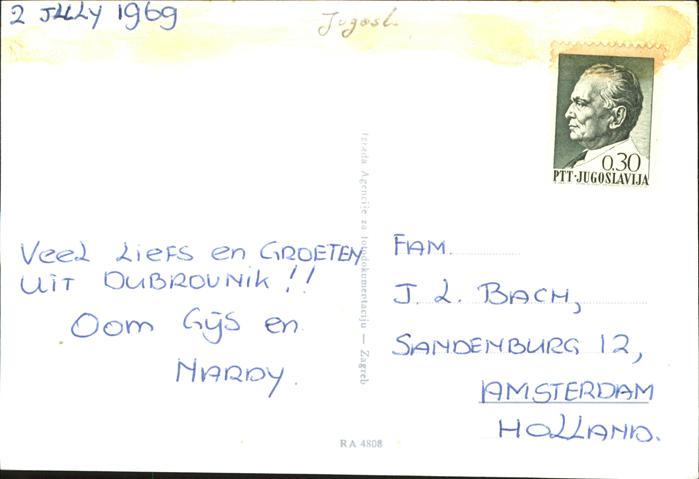 2 JULY 1969
Jugosl.
0.30
PTT·JUGOSLAVIJA
Veel Liefs en GROETEN
UIT DUBROVNIK!!
Oom Gijs en
NARDY.
Izrada Agencije za fotodokumentaciju — Zagreb
FAM.
J. L. BACH,
SANDENBURG 12,
AMSTERDAM
HOLLAND.
RA 4808